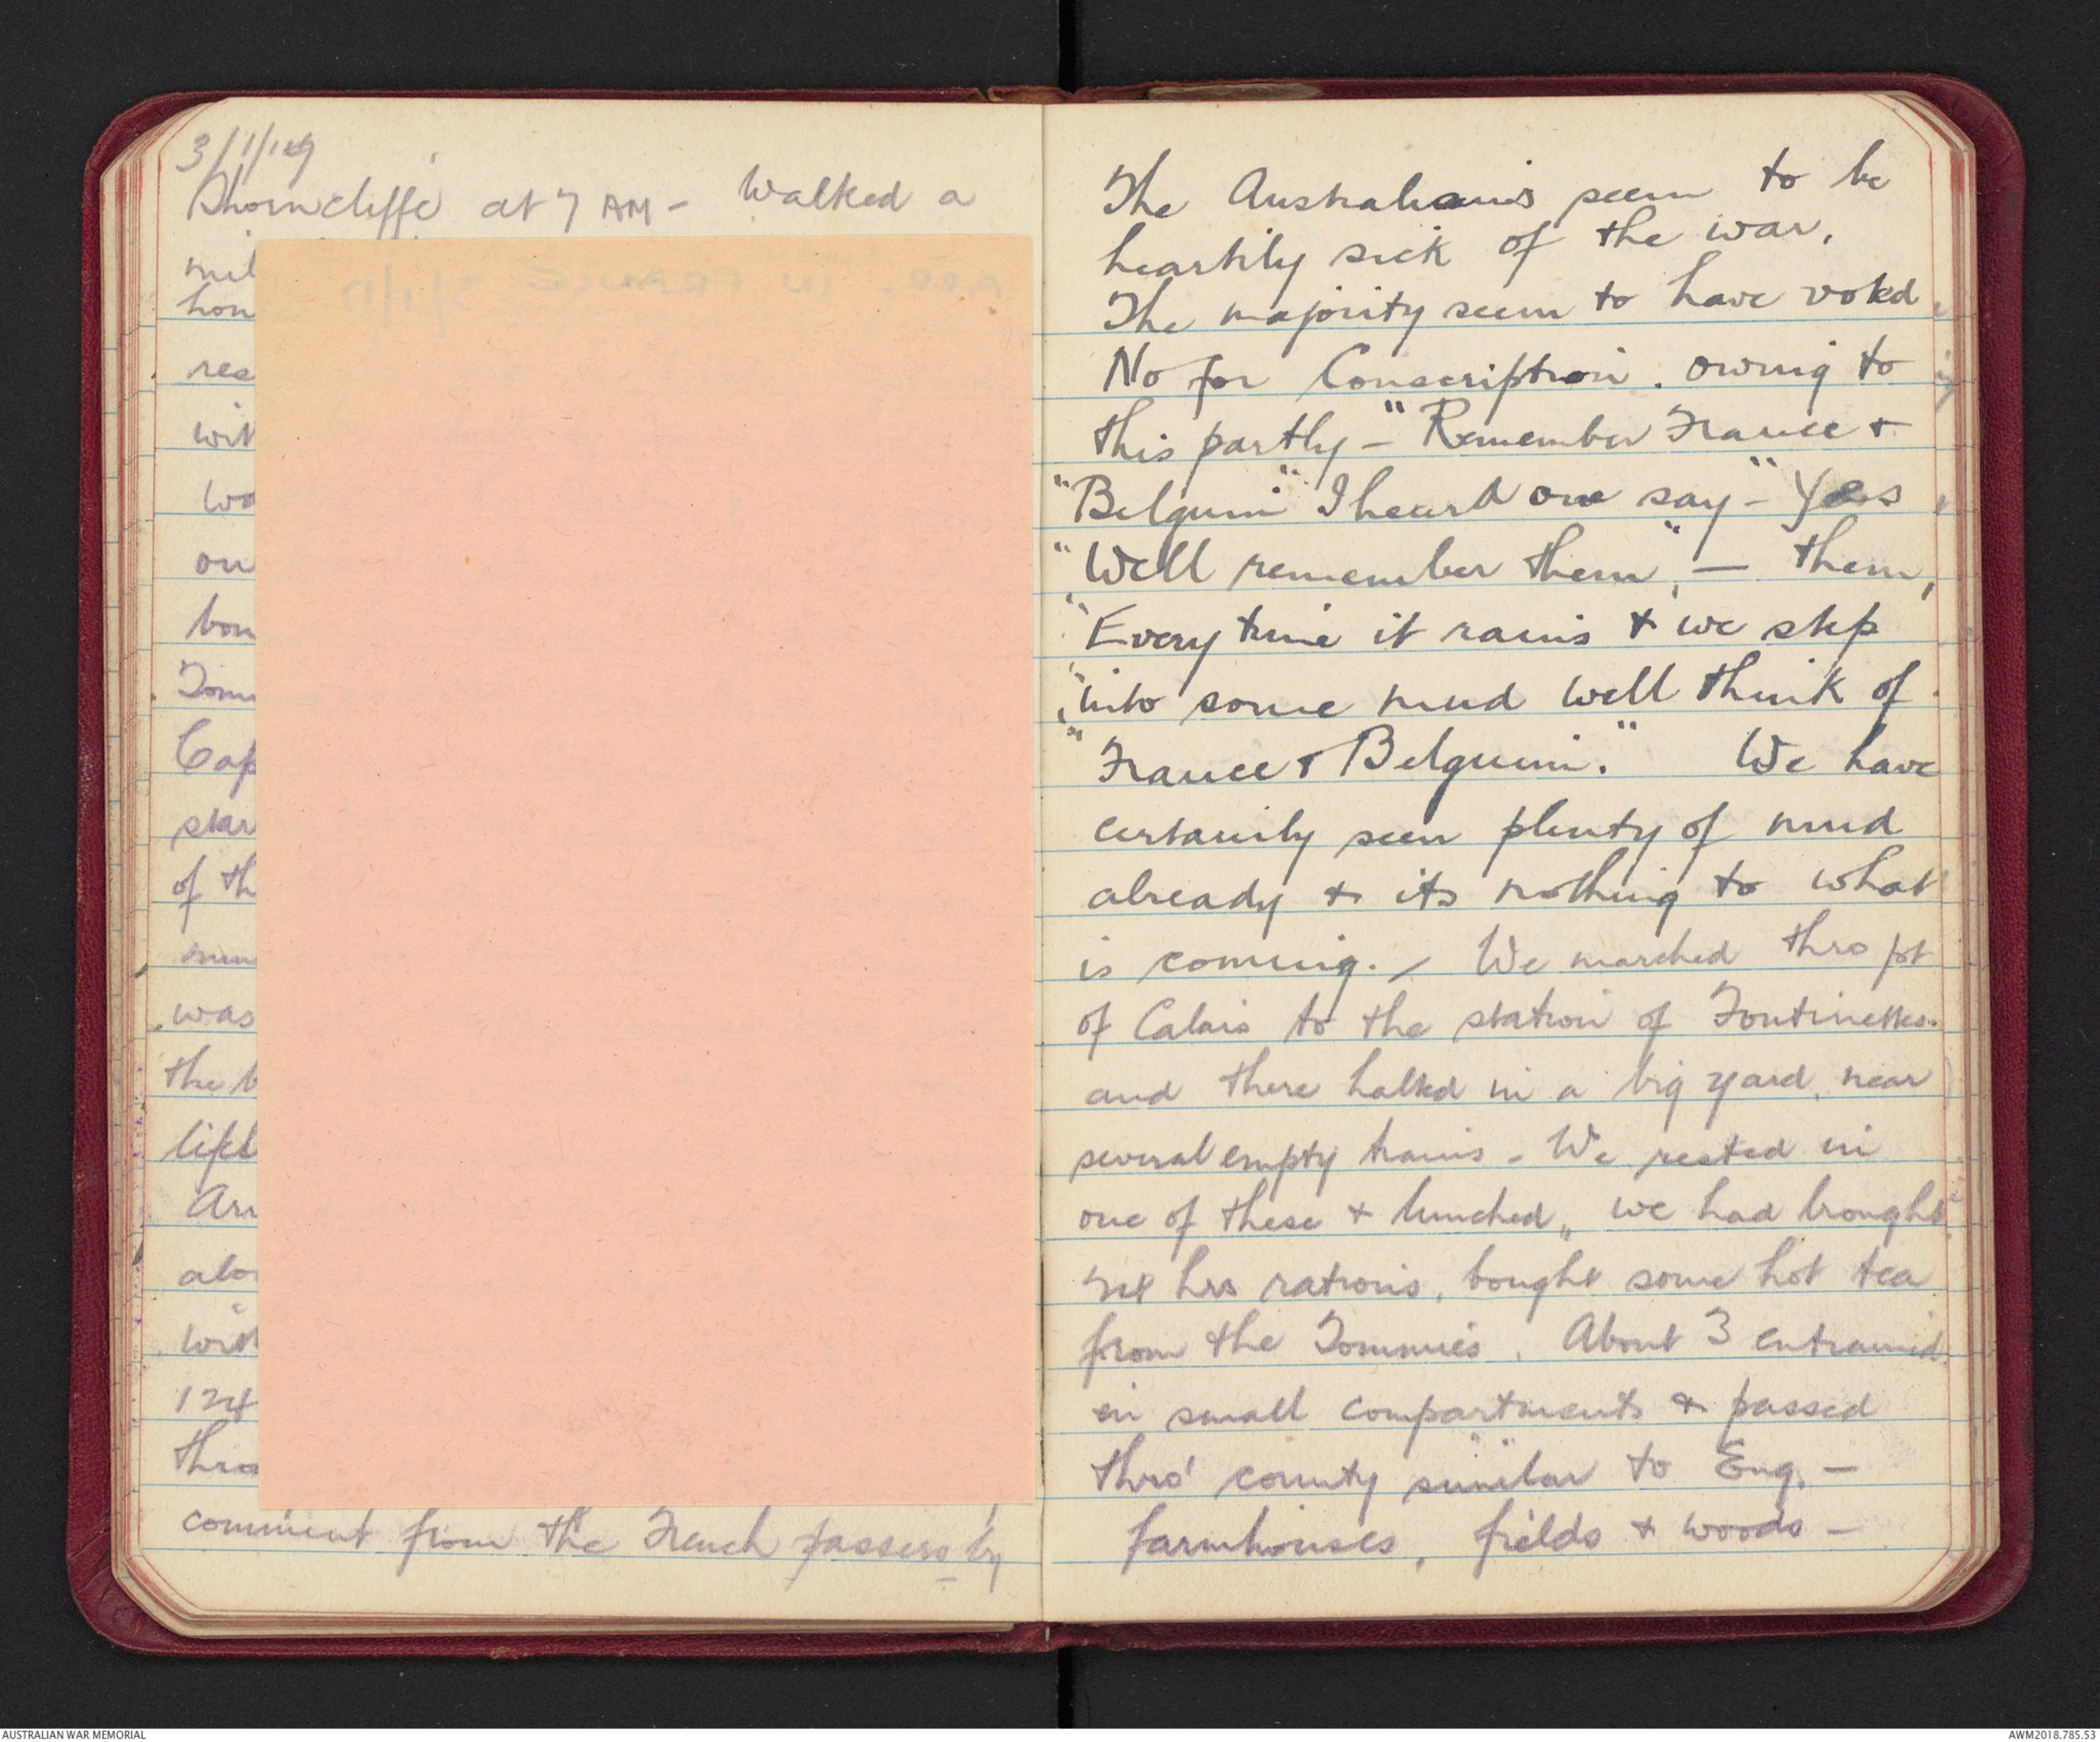 3/1/19
Shorncliffe at 7 AM - Walked a
mil
hon
res
wit
wa
on
bon
Tom
Cap
star
of th
was
the b
life
Arr
alo
with
124
thro
comment from the French passers by
The Australians seem to be
heartily sick of the war.
The majority seem to have voted
No for Conscription. owing to
this partly - "Remember France +
"Belguim" I heard one say - "Yes
"Well remember them", — them,
"Every time it rains + we step
"into some mud well think of
"France + Belguim." We have
certainly seen plenty of mud
already + its nothing to what
is coming. / We marched thro pt
of Calais to the station of Fontinettes.
and there halted in a big yard, near
several empty trains - We rested in
one of these + lunched, we had brought
24 hrs rations, bought some hot tea
from the Tommies. About 3 entrained
in small compartments + passed
thro' county similar to Eng. —
farmhouses, fields + woods —
AUSTRALIAN WAR MEMORIAL
AWM2018.785.53